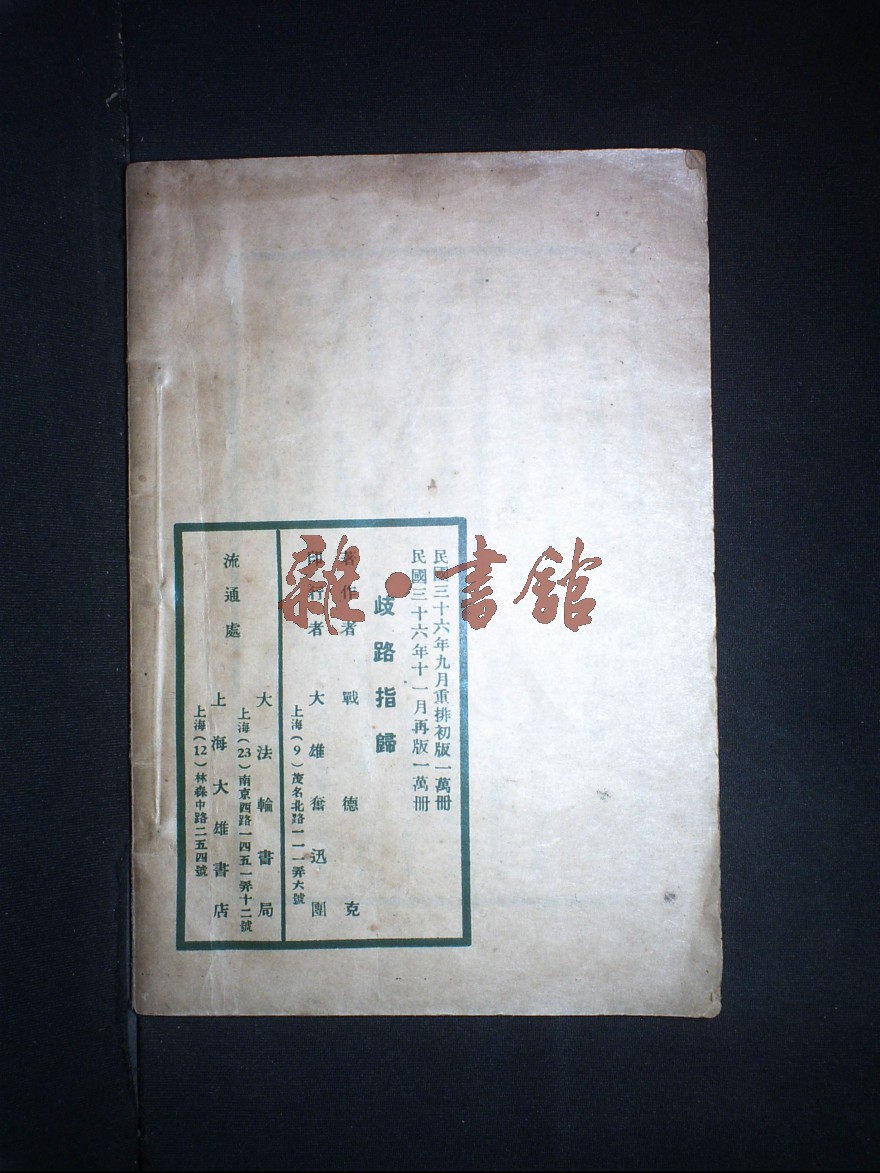 民國三十六年九月重排初版一萬冊
民國三十六年十一月再版一萬冊
歧路指歸
著作者 戰德克
印行者 大雄奮迅團
上海(9)茂名北路一一一弄六號
流通處
大法輪書局
上海(23)南京西路一四五一弄十二號
上海大雄書店
上海(12)林森中路二五四號
雜·書館